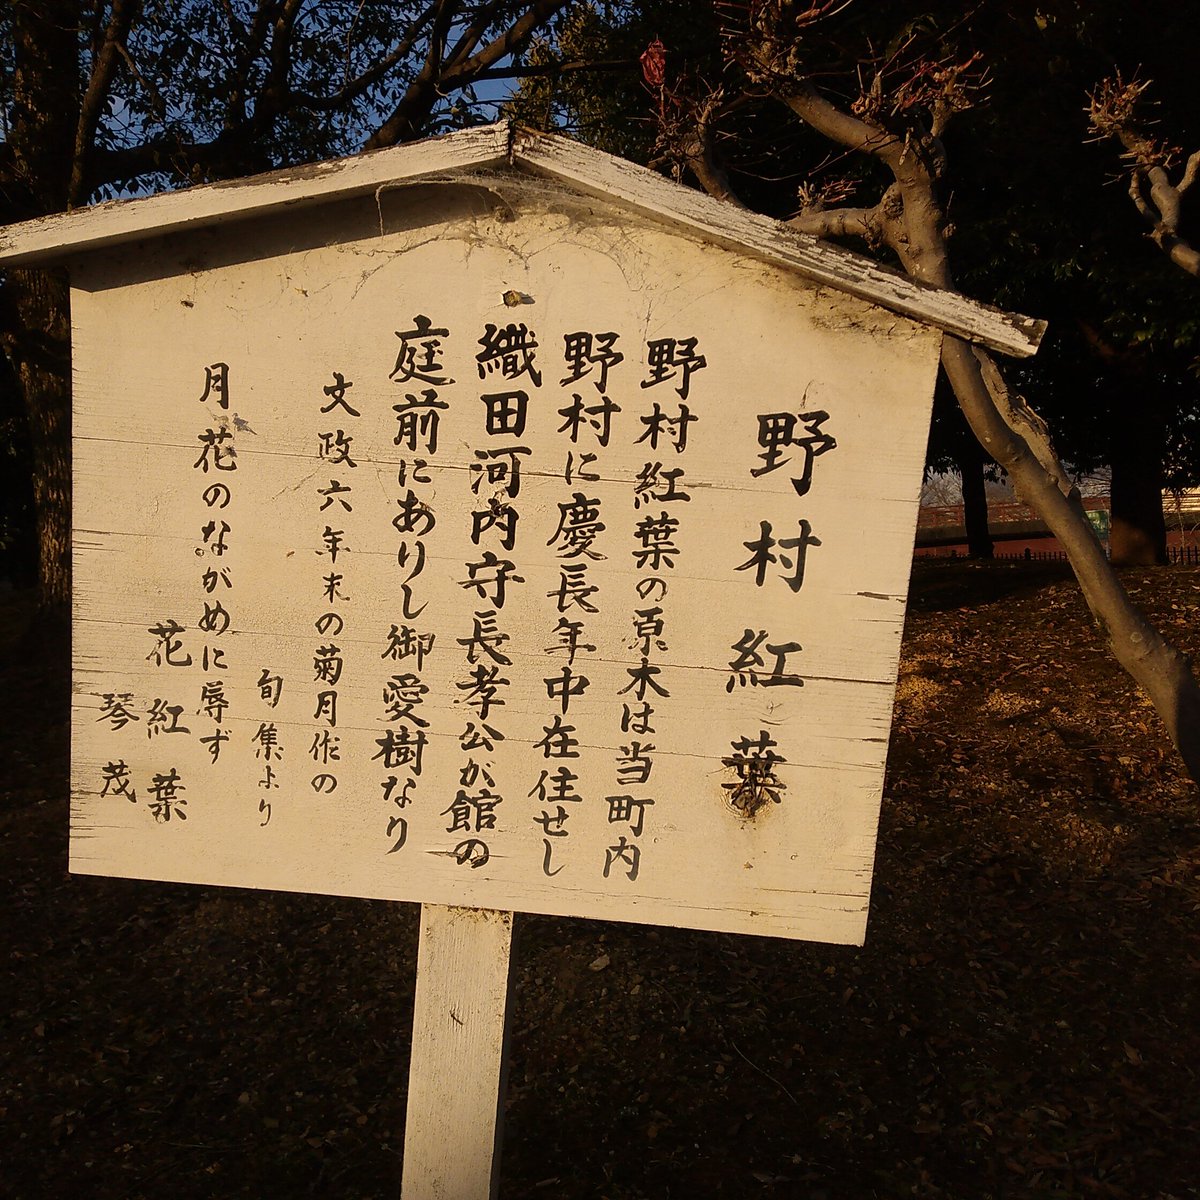 野村紅葉
野村紅葉の原木は当町内
野村に慶長年中在住せし
織田河内守長孝公が館の
庭前にありし御愛樹なり
文政六年末の菊月作の
旬集より
月花のながめに辱ず
花紅葉
琴茂